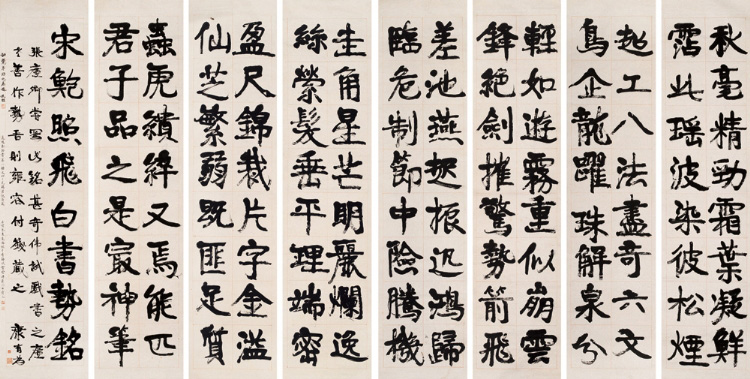 秋毫精勁霜葉凝鮮
霑此瑤波染彼松煙
起工八法盡奇六文
鳥企龍躍珠解泉分
輕如遊霧重似崩雲
鋒絕劍摧驚勢箭飛
差池燕起振迅鴻歸
臨危制節中險騰機
圭角星芒明麗爛逸
絲縈髮垂平理端密
盈尺錦裁片字金溢
仙芝繁弱既匪足質
蟲虎續緯又焉能匹
君子品之是最神筆
宋鮑照飛白書勢銘
張廉卿嘗寫此銘甚奇偉試戲書之廉
書作勢吾則藏付藏之 康有為